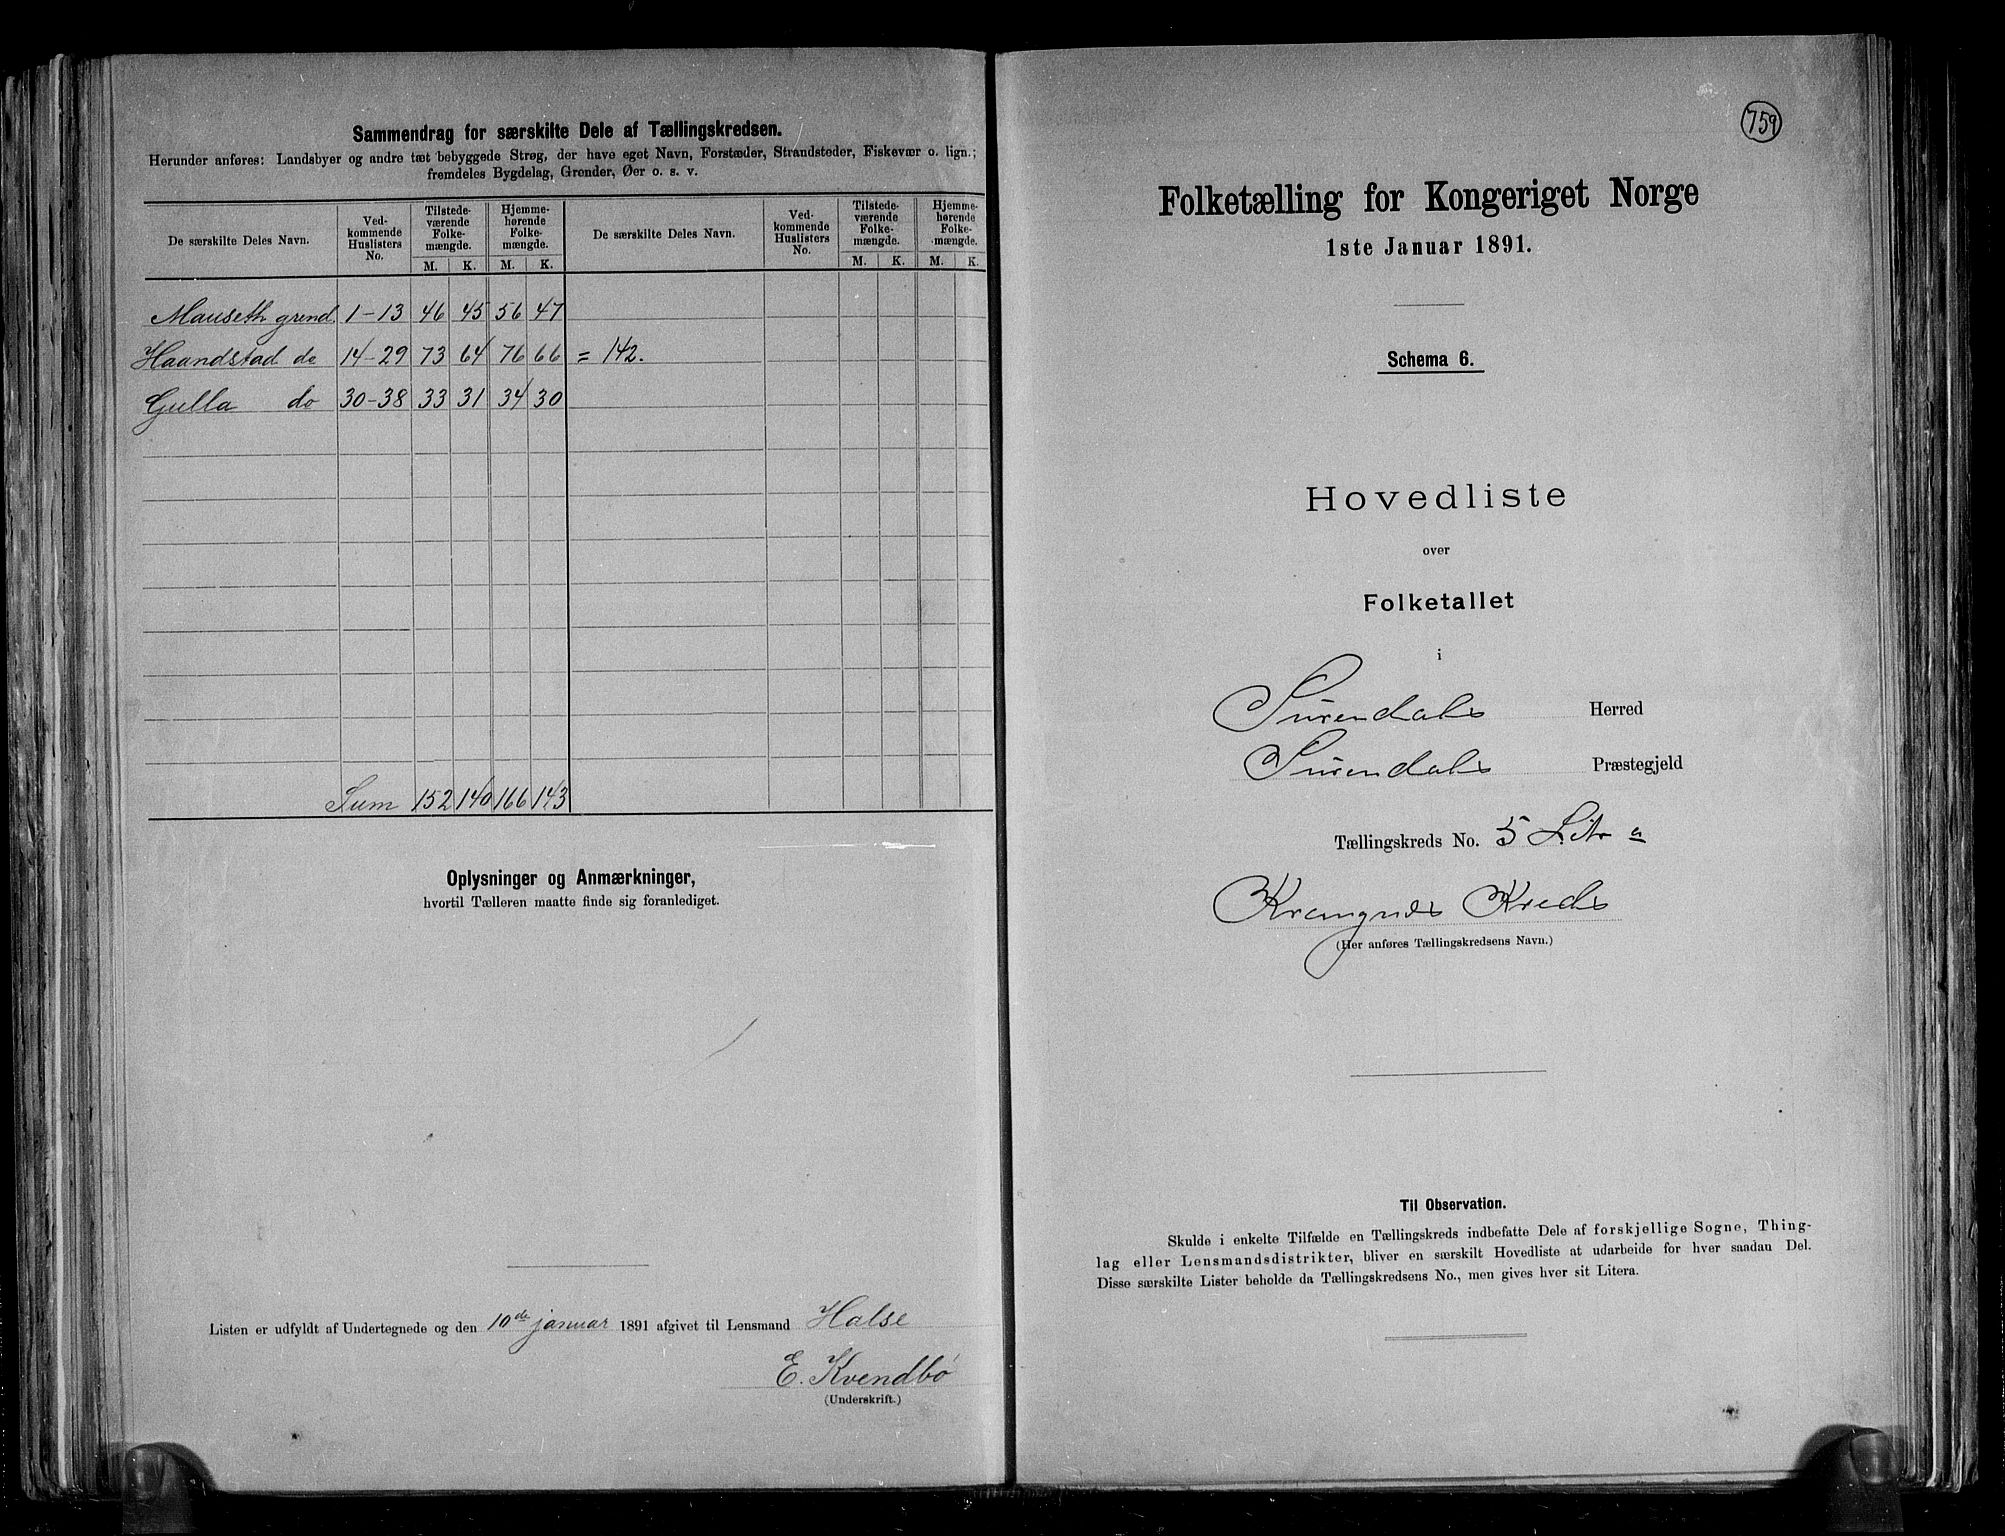 Sammendrag for særskilte Dele af Tællingskredsen.
Herunder anføres: Landsbyer og andre tæt bebyggede Strøg, der have eget Navn, Forstæder, Strandsteder, Fiskevær o. lign.;
fremdeles Bygdelag, Grender, Øer o. s. v.
De særskilte Deles Navn. Ved-kommende Huslisters No. Tilstede-værende Folke-mængde. Hjemme-hørende Folke-mængde. De særskilte Deles Navn. Ved-kommende Huslisters No. Tilstede-værende Folke-mængde. Hjemme-hørende Folke-mængde.
M. K. M. K. M. K. M. K.
Mauseth grend 1-13 46 45 56 47
Haandstad do 14-29 73 64 76 66 = 142.
Gulla do 30-38 33 31 34 30
Sum 152 140 166 143
Oplysninger og Anmærkninger,
hvortil Tælleren maatte finde sig foranlediget.
Listen er udfyldt af Undertegnede og den 10de januar 1891 afgivet til Lensmand Halse
E. Kvendbø
(Underskrift.)
759
Folketælling for Kongeriget Norge
1ste Januar 1891.
Schema 6.
Hovedliste
over
Folketallet
i
Surendals Herred
Surendals Præstegjeld
Tællingskreds No. 5 Litr a
Krangnæs Kreds
(Her anføres Tællingskredsens Navn.)
Til Observation.
Skulde i enkelte Tilfælde en Tællingskreds indbefatte Dele af forskjellige Sogne, Thing-
lag eller Lensmandsdistrikter, bliver en særskilt Hovedliste at udarbeide for hver saadan Del.
Disse særskilte Lister beholde da Tællingskredsens No., men gives hver sit Litera.